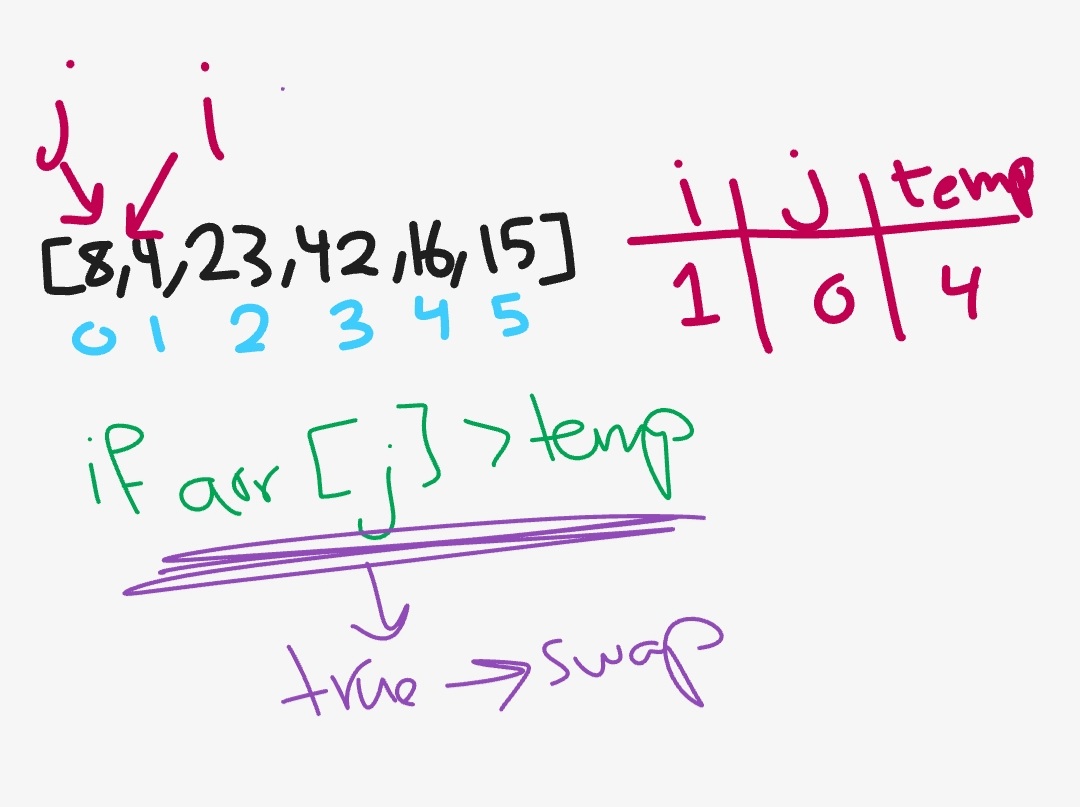 j i
[8,4,23,42,16,15]
0 1 2 3 4 5
i j temp
1 0 4
if arr[j]>temp
true → swap